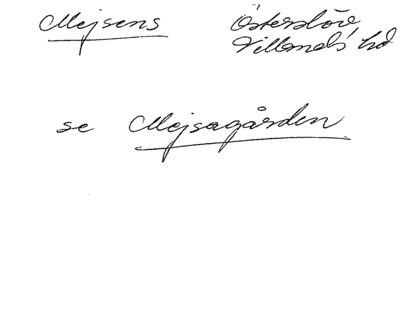 Mejsens Österslöv
Villands hd
se Mejsagården